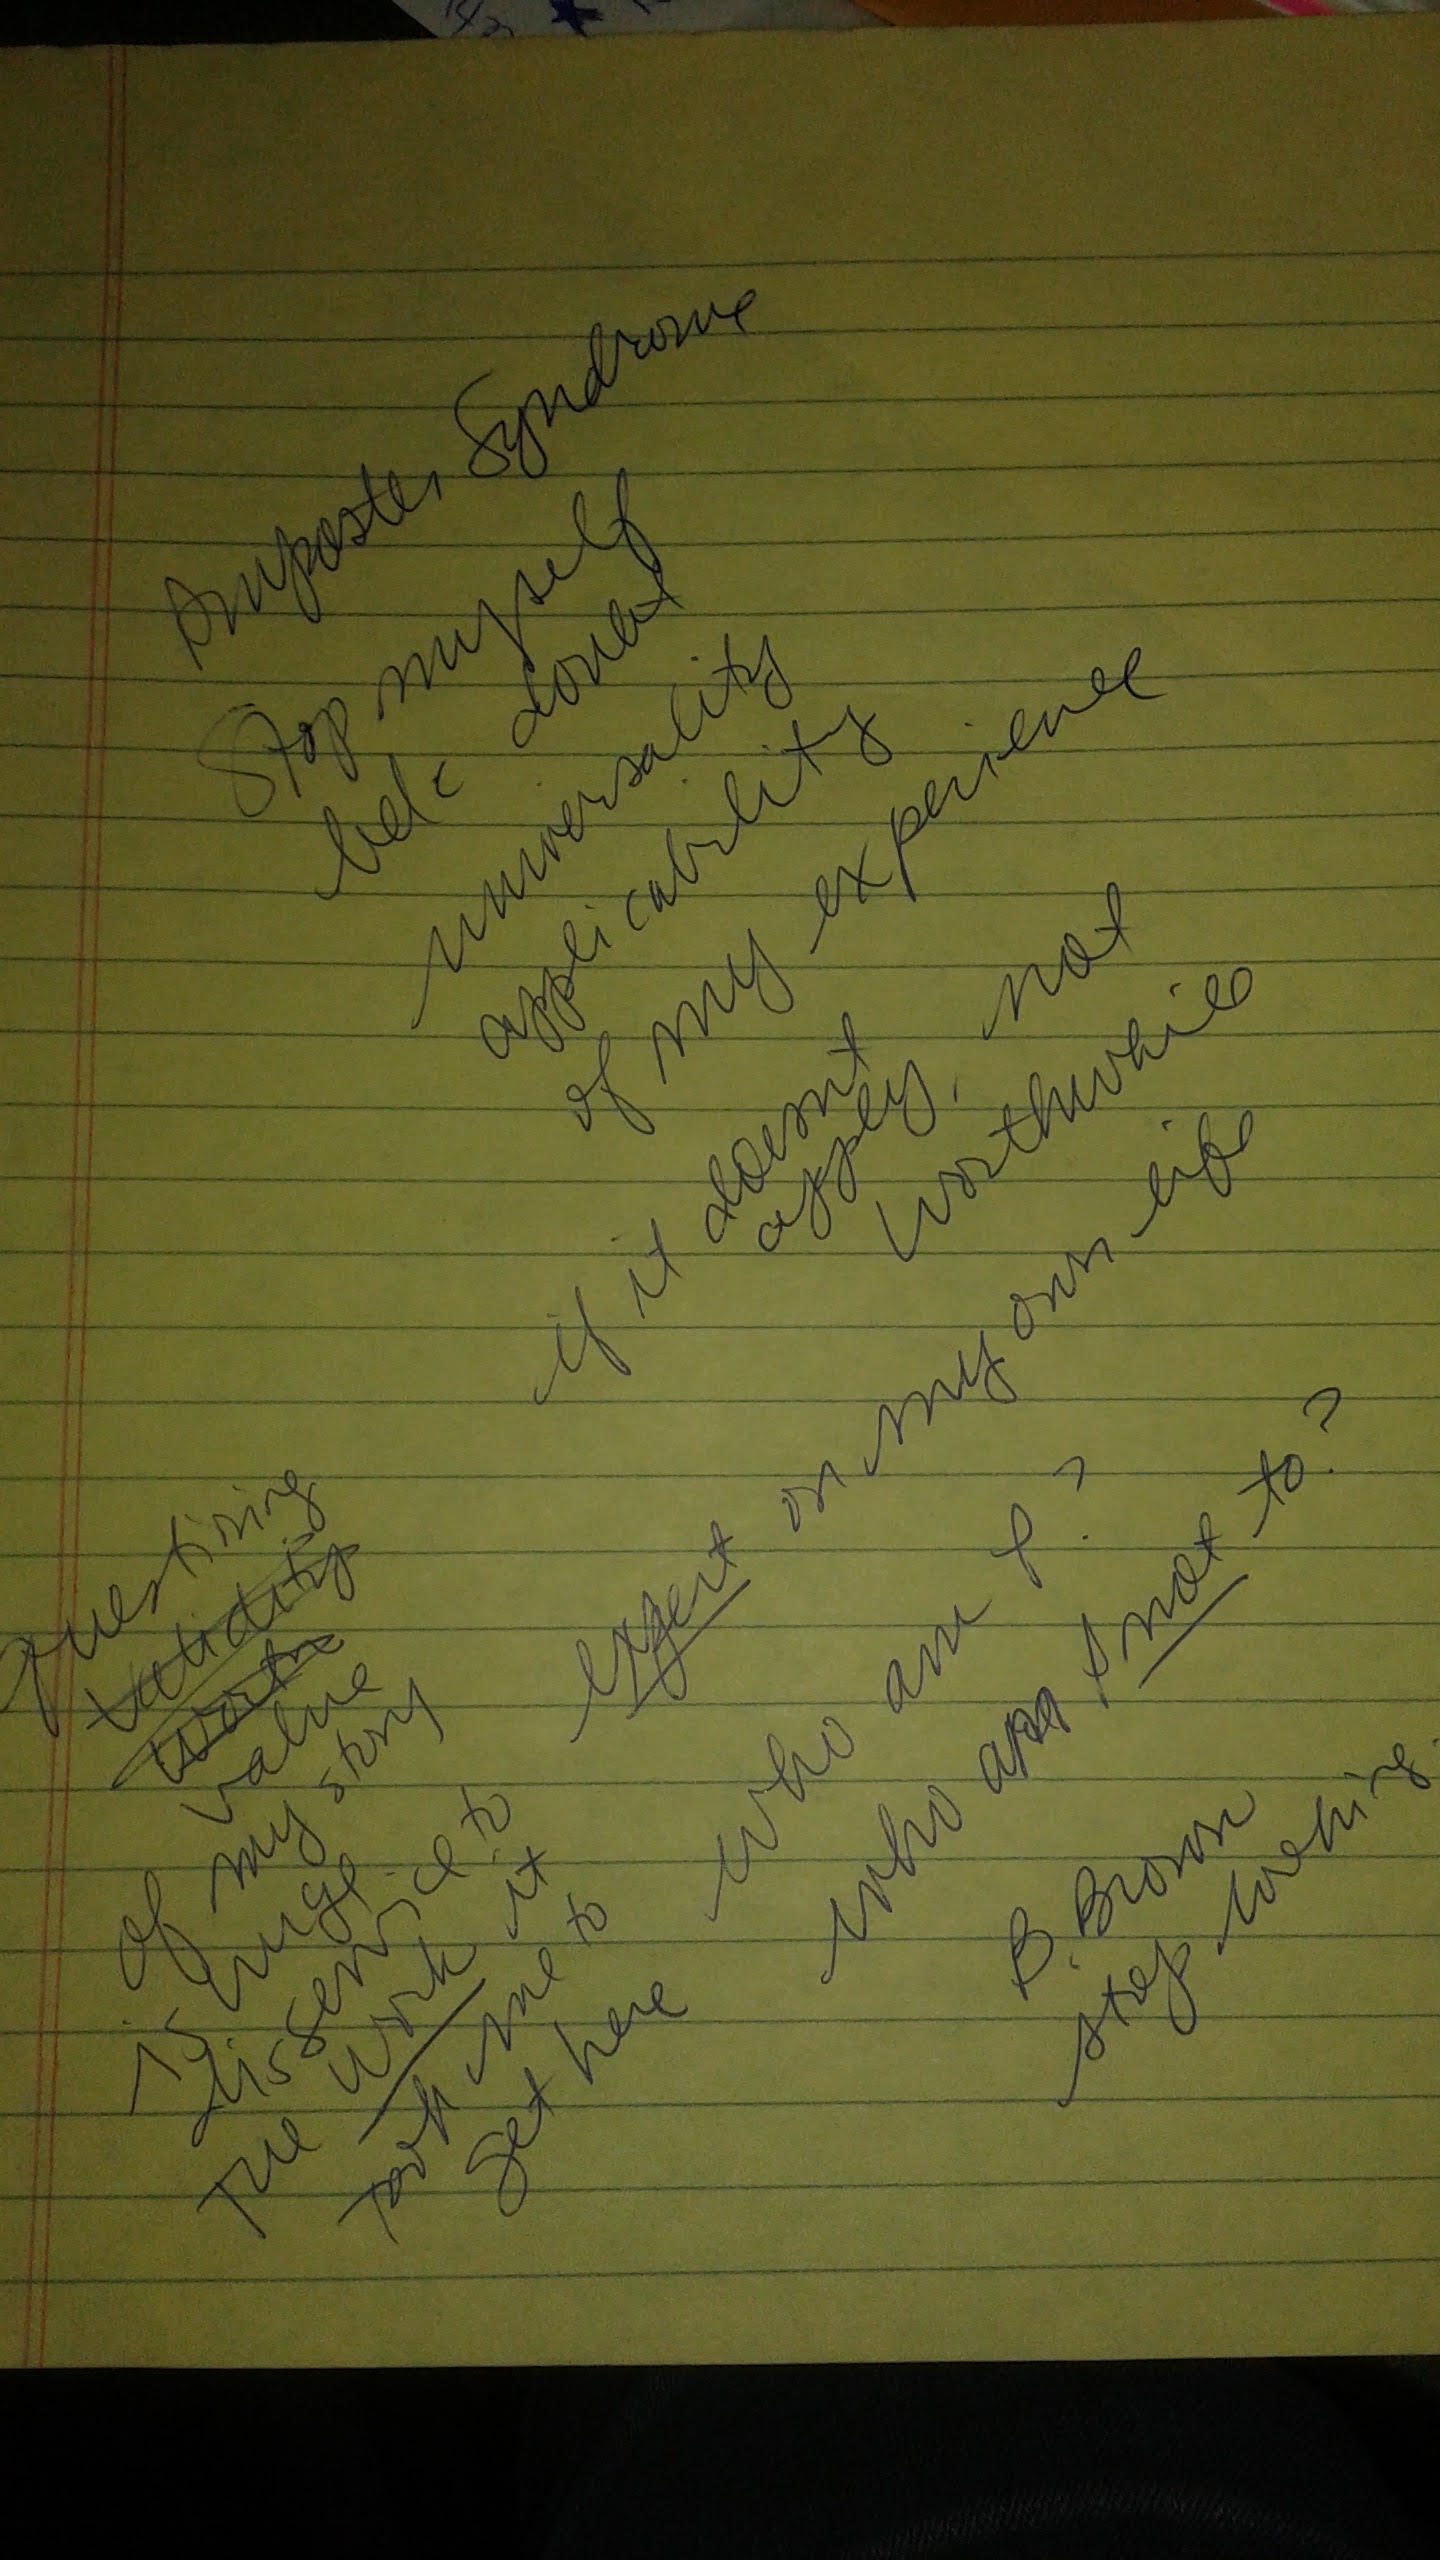 Imposter Syndrome
Stop myself
bc doubt
universality
applicability
of my experience
if it doesnt
apply, not
worthwhile
expert on my own life
who am I?
who am I not to?
B. Brown
stop looking
Questioning
validity
worth
value
of my story
is huge
disservice to
The work it
took me to
get here